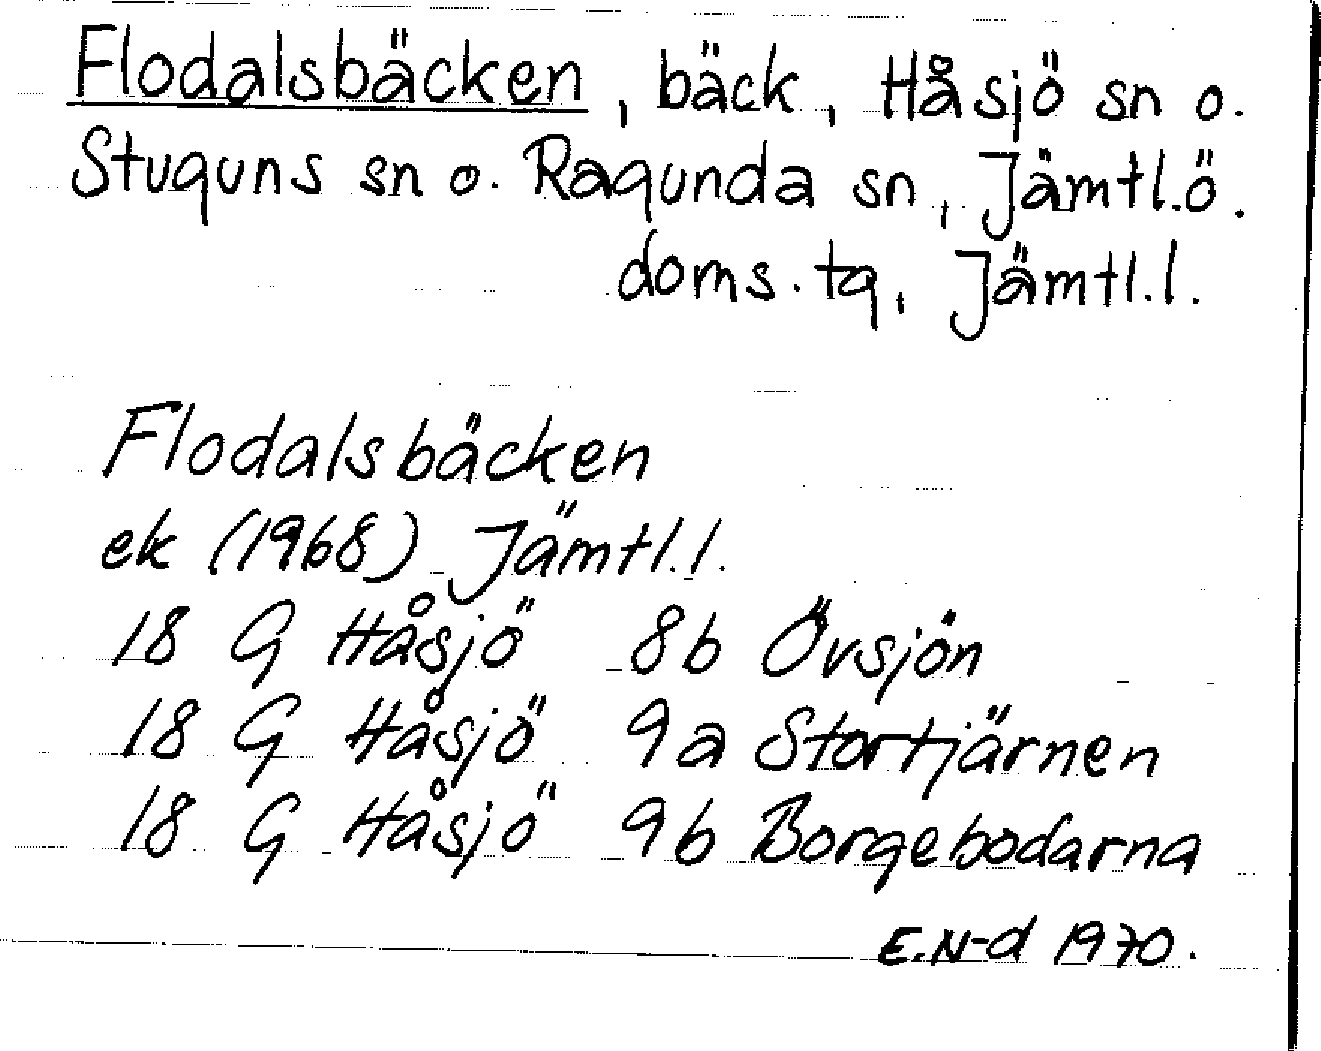 Flodalsbäcken, bäck, Håsjö sn o.
Stuguns sn o. Ragunda sn, Jämtl.ö.
doms.tg, Jämtl.l.
Flodalsbäcken
ek (1968) Jämtl.l.
18 G Håsjö 8b Övsjön
18 G Håsjö 9a Stortjärnen
18 G Håsjö 9b Borgebodarna
E.N-d 1970.